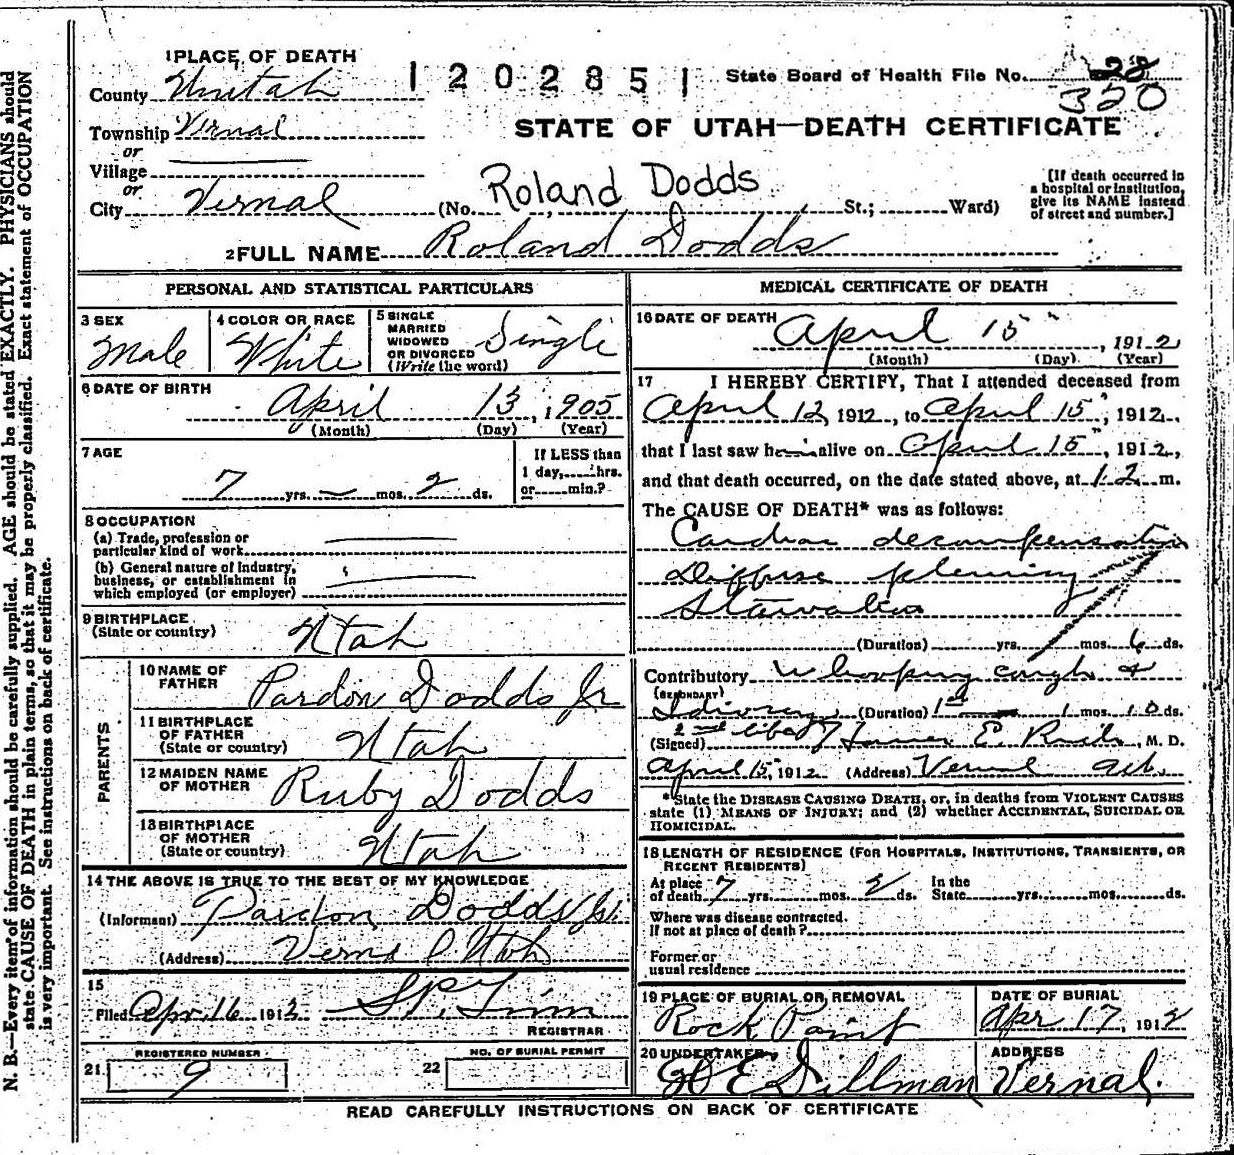 1 PLACE OF DEATH
County Uintah
Township Vernal
or
Village
or
City Vernal
1202851
State Board of Health File No. 28
320
STATE OF UTAH—DEATH CERTIFICATE
(No. Roland Dodds St.; Ward)
[If death occurred in
a hospital or institution,
give its NAME instead
of street and number.]
2 FULL NAME Roland Dodds
N. B.—Every item of information should be carefully supplied. AGE should be stated EXACTLY. PHYSICIANS should
state CAUSE OF DEATH in plain terms, so that it may be properly classified. Exact statement of OCCUPATION
is very important. See instructions on back of certificate.
PERSONAL AND STATISTICAL PARTICULARS
3 SEX
Male
4 COLOR OR RACE
White
5 SINGLE
MARRIED
WIDOWED
OR DIVORCED
(Write the word)
Single
6 DATE OF BIRTH
April 13, 1905
(Month) (Day) (Year)
7 AGE
7 yrs. — mos. 2 ds.
If LESS than
1 day, hrs.
or min.?
8 OCCUPATION
(a) Trade, profession or
particular kind of work
(b) General nature of Industry,
business, or establishment in
which employed (or employer)
9 BIRTHPLACE
(State or country)
Utah
PARENTS
10 NAME OF
FATHER
Pardon Dodds Jr
11 BIRTHPLACE
OF FATHER
(State or country)
Utah
12 MAIDEN NAME
OF MOTHER
Ruby Dodds
13 BIRTHPLACE
OF MOTHER
(State or country)
Utah
14 THE ABOVE IS TRUE TO THE BEST OF MY KNOWLEDGE
(Informant) Pardon Dodds Jr.
(Address) Vernal Utah
15
Filed Apr. 16 1912
REGISTRAR
REGISTERED NUMBER
21 9
NO. OF BURIAL PERMIT
22
MEDICAL CERTIFICATE OF DEATH
16 DATE OF DEATH
April 15, 1912
(Month) (Day) (Year)
17 I HEREBY CERTIFY, That I attended deceased from
April 12, 1912, to April 15, 1912,
that I last saw him alive on April 15, 1912,
and that death occurred, on the date stated above, at 12 m.
The CAUSE OF DEATH* was as follows:
Cardiac decompensation
Diffuse pleurisy
Starvation
(Duration) yrs. mos. 6 ds.
Contributory Whooping cough &
(SECONDARY)
(Duration) 1st — 1 mos. 10 ds.
2nd
(Signed) E. M. D.
April 15, 1912 (Address) Vernal
*State the DISEASE CAUSING DEATH, or, in deaths from VIOLENT CAUSES
state (1) MEANS OF INJURY; and (2) whether ACCIDENTAL, SUICIDAL OR
HOMICIDAL.
18 LENGTH OF RESIDENCE (FOR HOSPITALS, INSTITUTIONS, TRANSIENTS, OR
RECENT RESIDENTS)
At place
of death 7 yrs. mos. 2 ds.
In the
State yrs. mos. ds.
Where was disease contracted.
If not at place of death?
Former or
usual residence
19 PLACE OF BURIAL OR REMOVAL
Rock Point
DATE OF BURIAL
Apr 17, 1912
20 UNDERTAKER
E Dillman
ADDRESS
Vernal.
READ CAREFULLY INSTRUCTIONS ON BACK OF CERTIFICATE